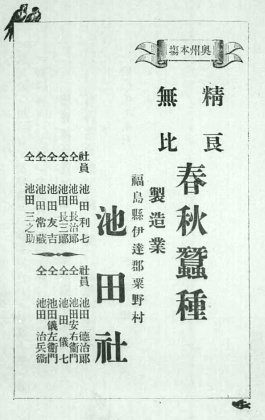 奥州本塲
精良
無比
春秋蠶種
製造業
福島縣伊達郡粟野村
池田社
社員 池田利七
仝 池田長治郎
仝 池田長三郎
仝 池田友吉
仝 池田常藏
仝 池田三之助
社員 池田德治郎
仝 池田安右衞門
仝 池田儀七
仝 池田儀左衞門
仝 池田治兵衞